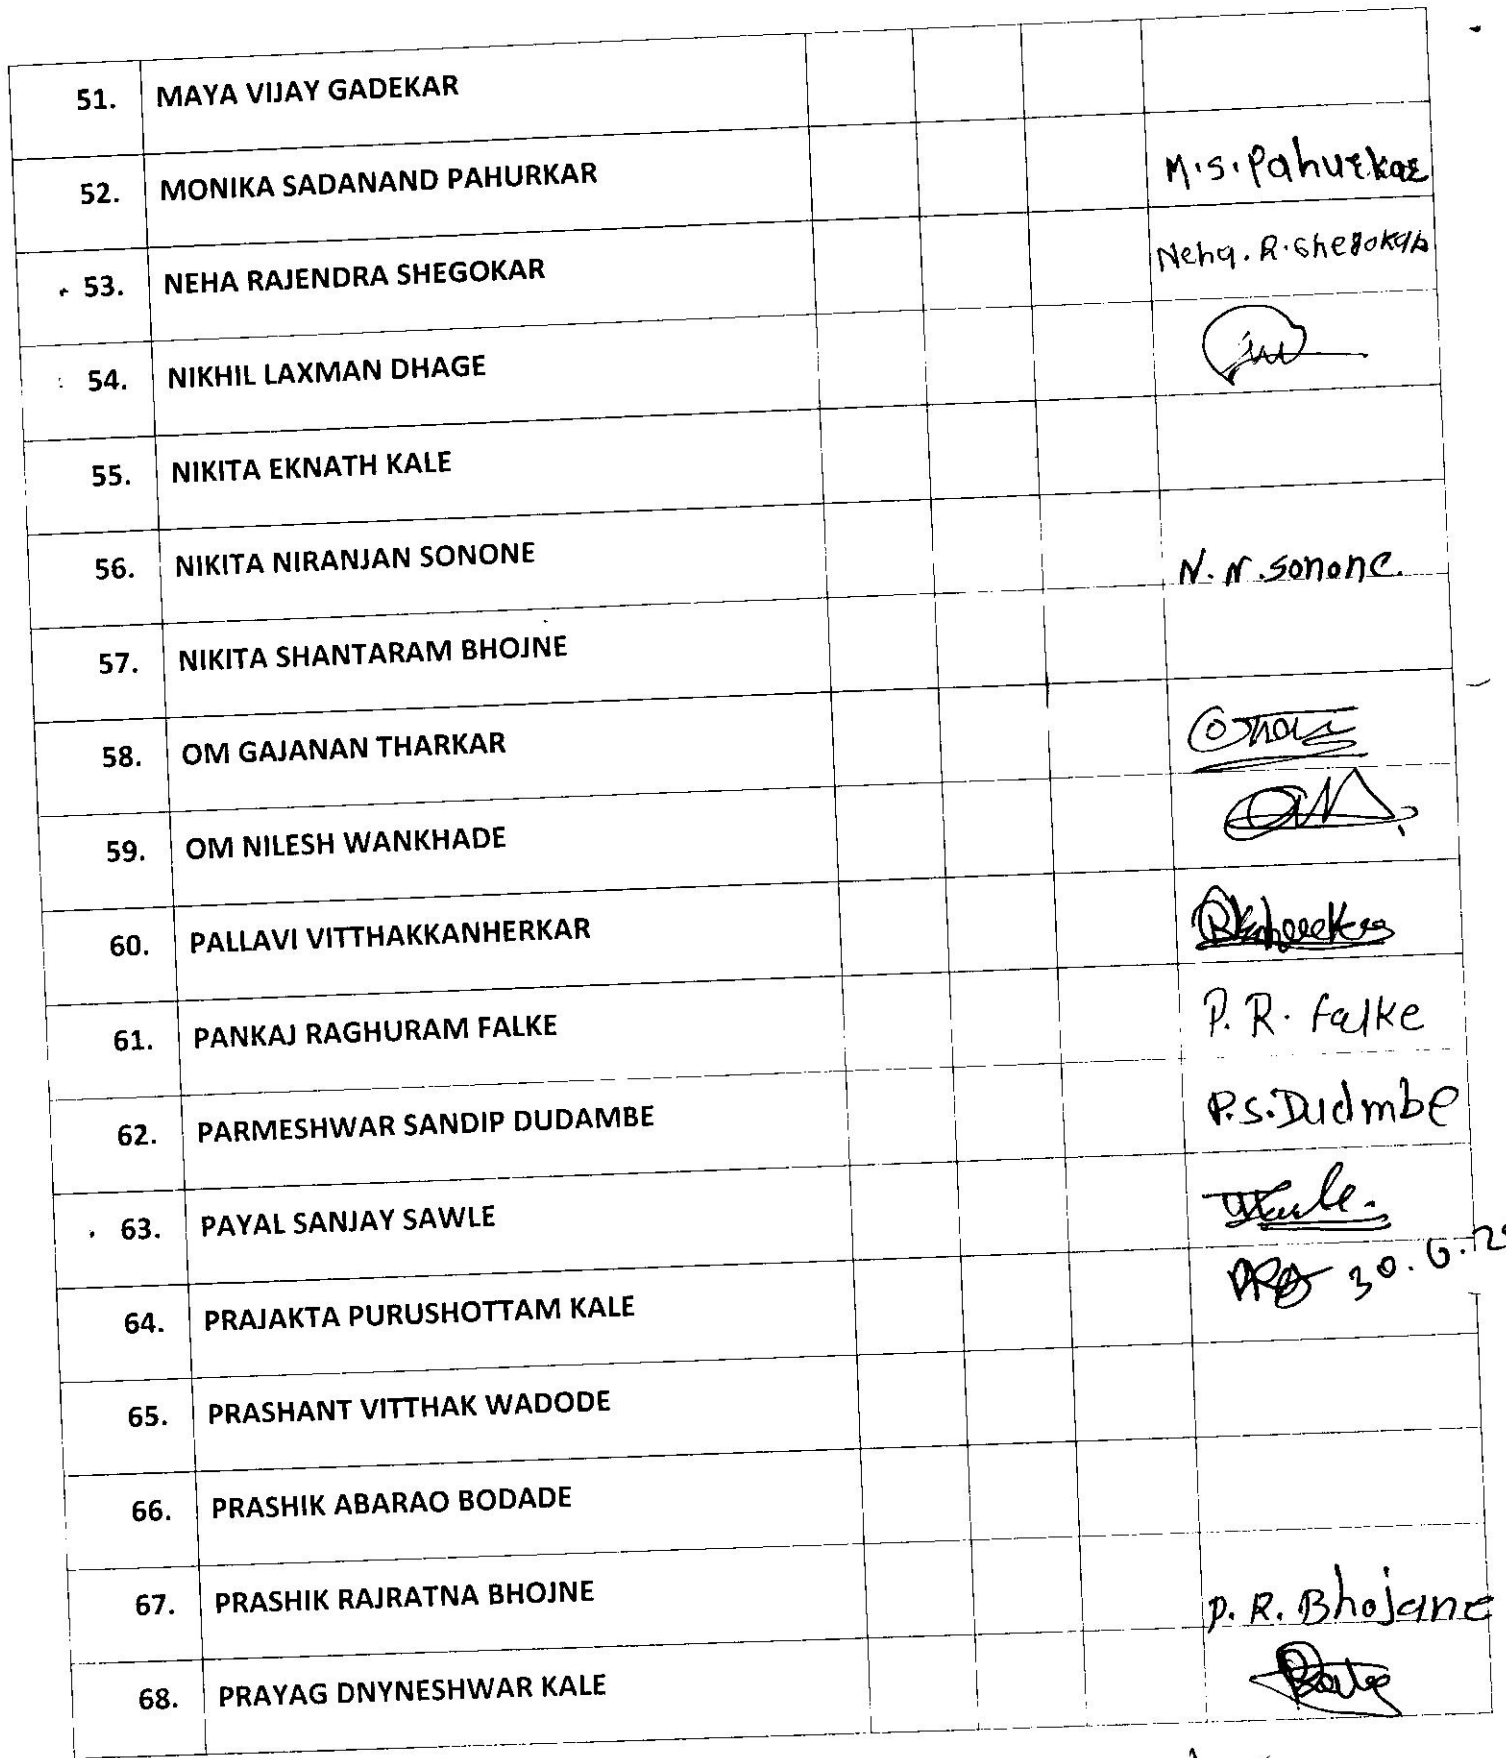 51. MAYA VIJAY GADEKAR
52. MONIKA SADANAND PAHURKAR M.S.Pahurkar
53. NEHA RAJENDRA SHEGOKAR Neha. R. Shegokar
54. NIKHIL LAXMAN DHAGE
55. NIKITA EKNATH KALE
56. NIKITA NIRANJAN SONONE N. N. Sonone.
57. NIKITA SHANTARAM BHOJNE
58. OM GAJANAN THARKAR
59. OM NILESH WANKHADE
60. PALLAVI VITTHAKKANHERKAR
61. PANKAJ RAGHURAM FALKE P. R. Falke
62. PARMESHWAR SANDIP DUDAMBE P.S.Dudmbe
63. PAYAL SANJAY SAWLE
64. PRAJAKTA PURUSHOTTAM KALE 30.6.2
65. PRASHANT VITTHAK WADODE
66. PRASHIK ABARAO BODADE
67. PRASHIK RAJRATNA BHOJNE P. R. Bhojane
68. PRAYAG DNYNESHWAR KALE